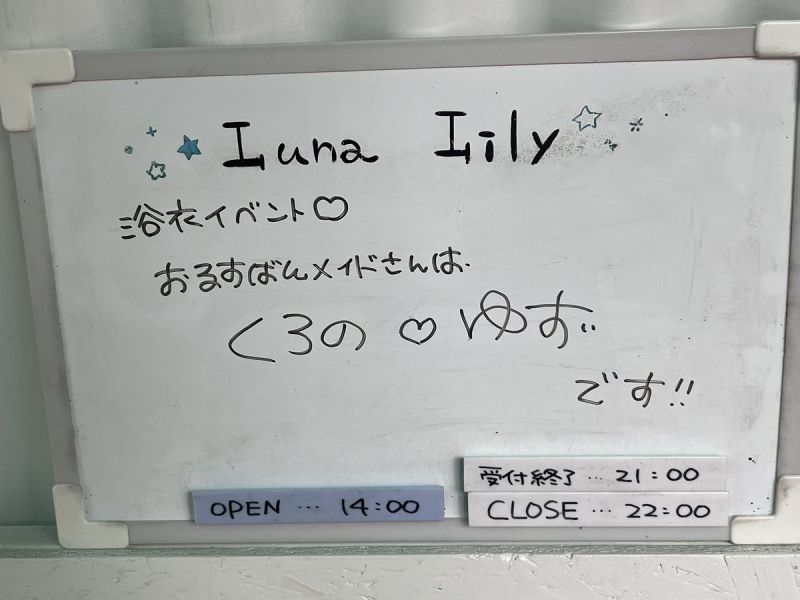 Luna Lily
浴衣イベント♡
おるすばんメイドさんは
くろの♡ゆず
です!!
受付終了…21:00
OPEN…14:00
CLOSE…22:00